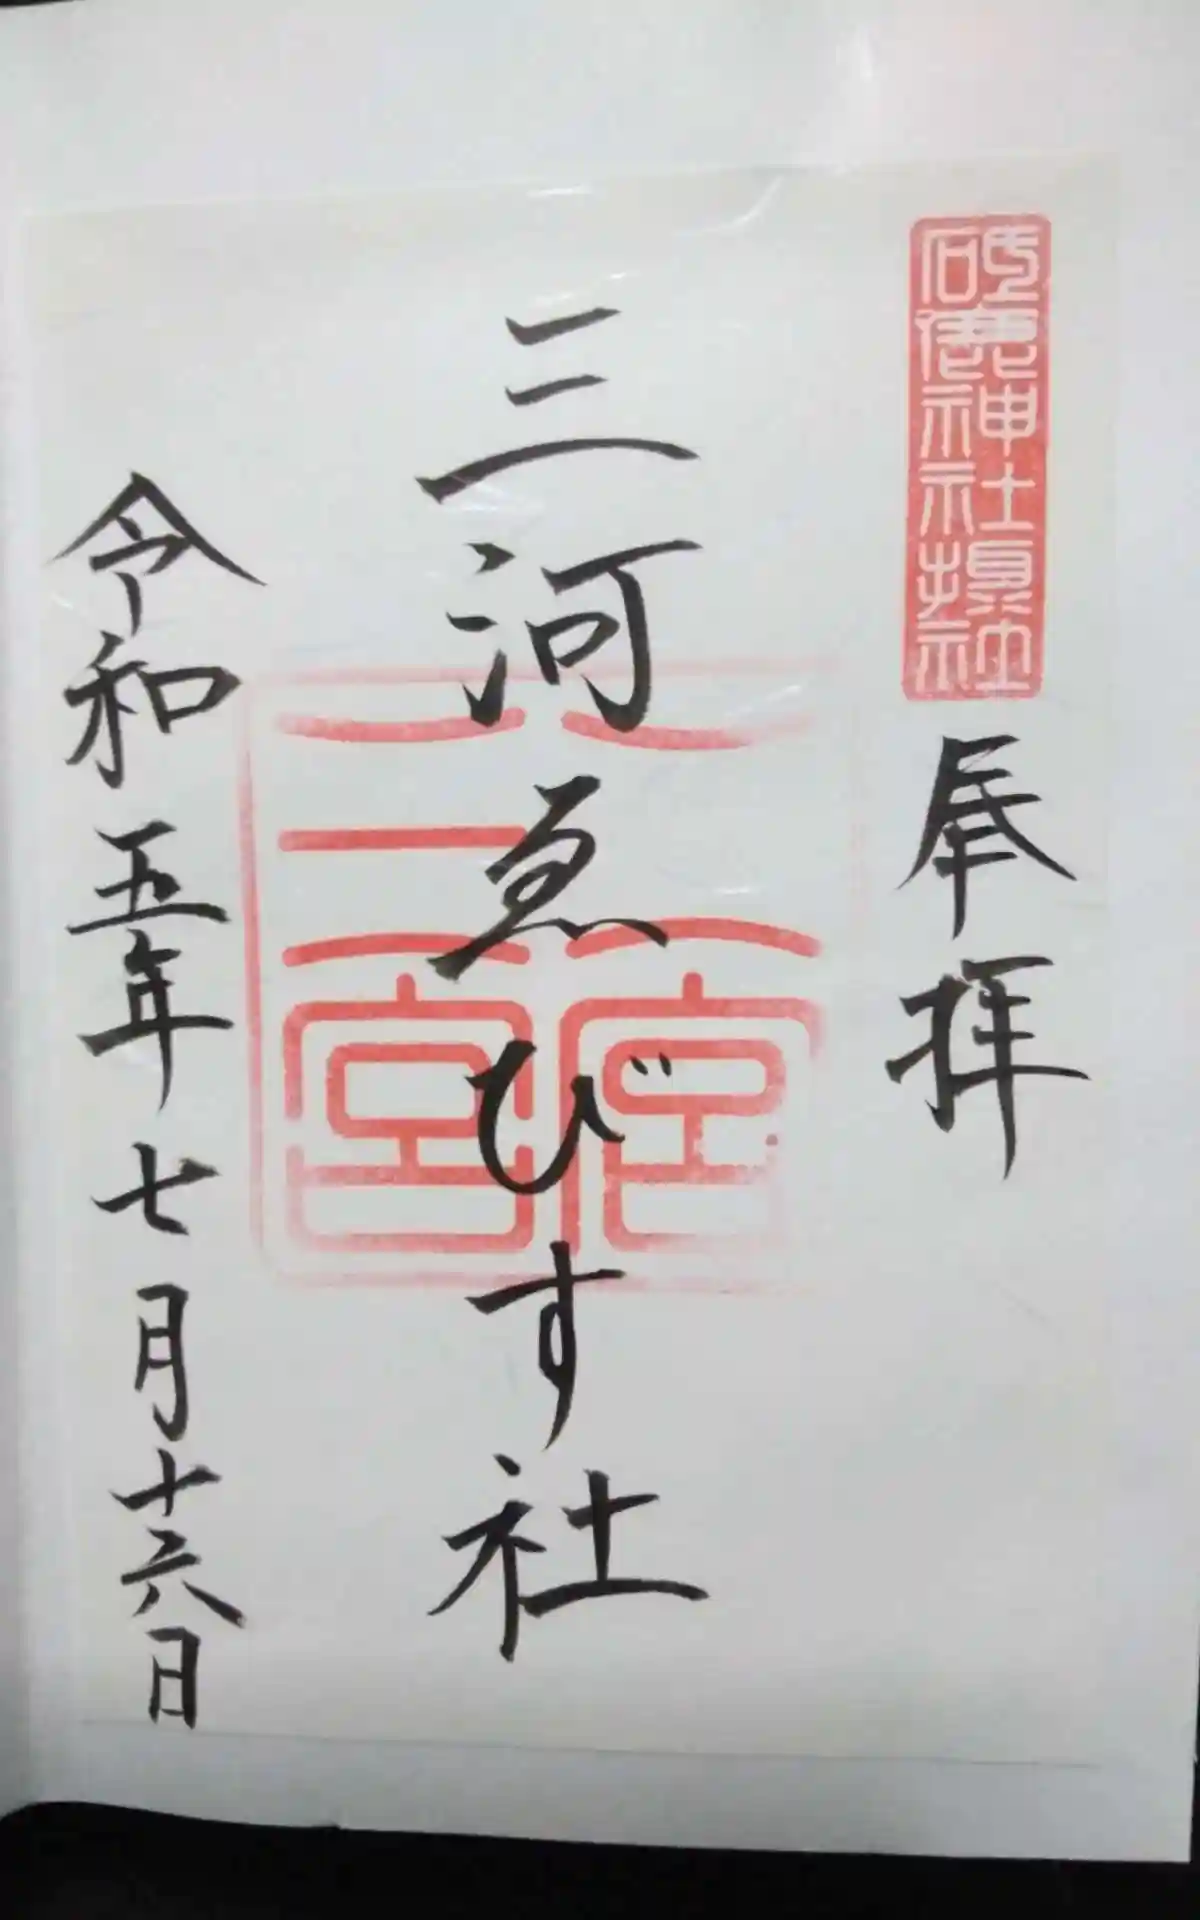 砥鹿神社摂社
奉拝
三河ゑびす社
二宮
三宮
令和五年七月十六日